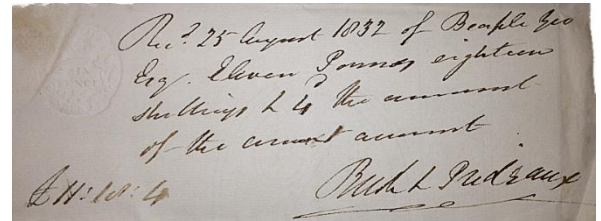 Rec.d 25 August 1832 of Beaple Geo
Esq. Eleven Pounds eighteen
shillings & 4d the amount
of the account
£11:18:4
Bush & Prideaux